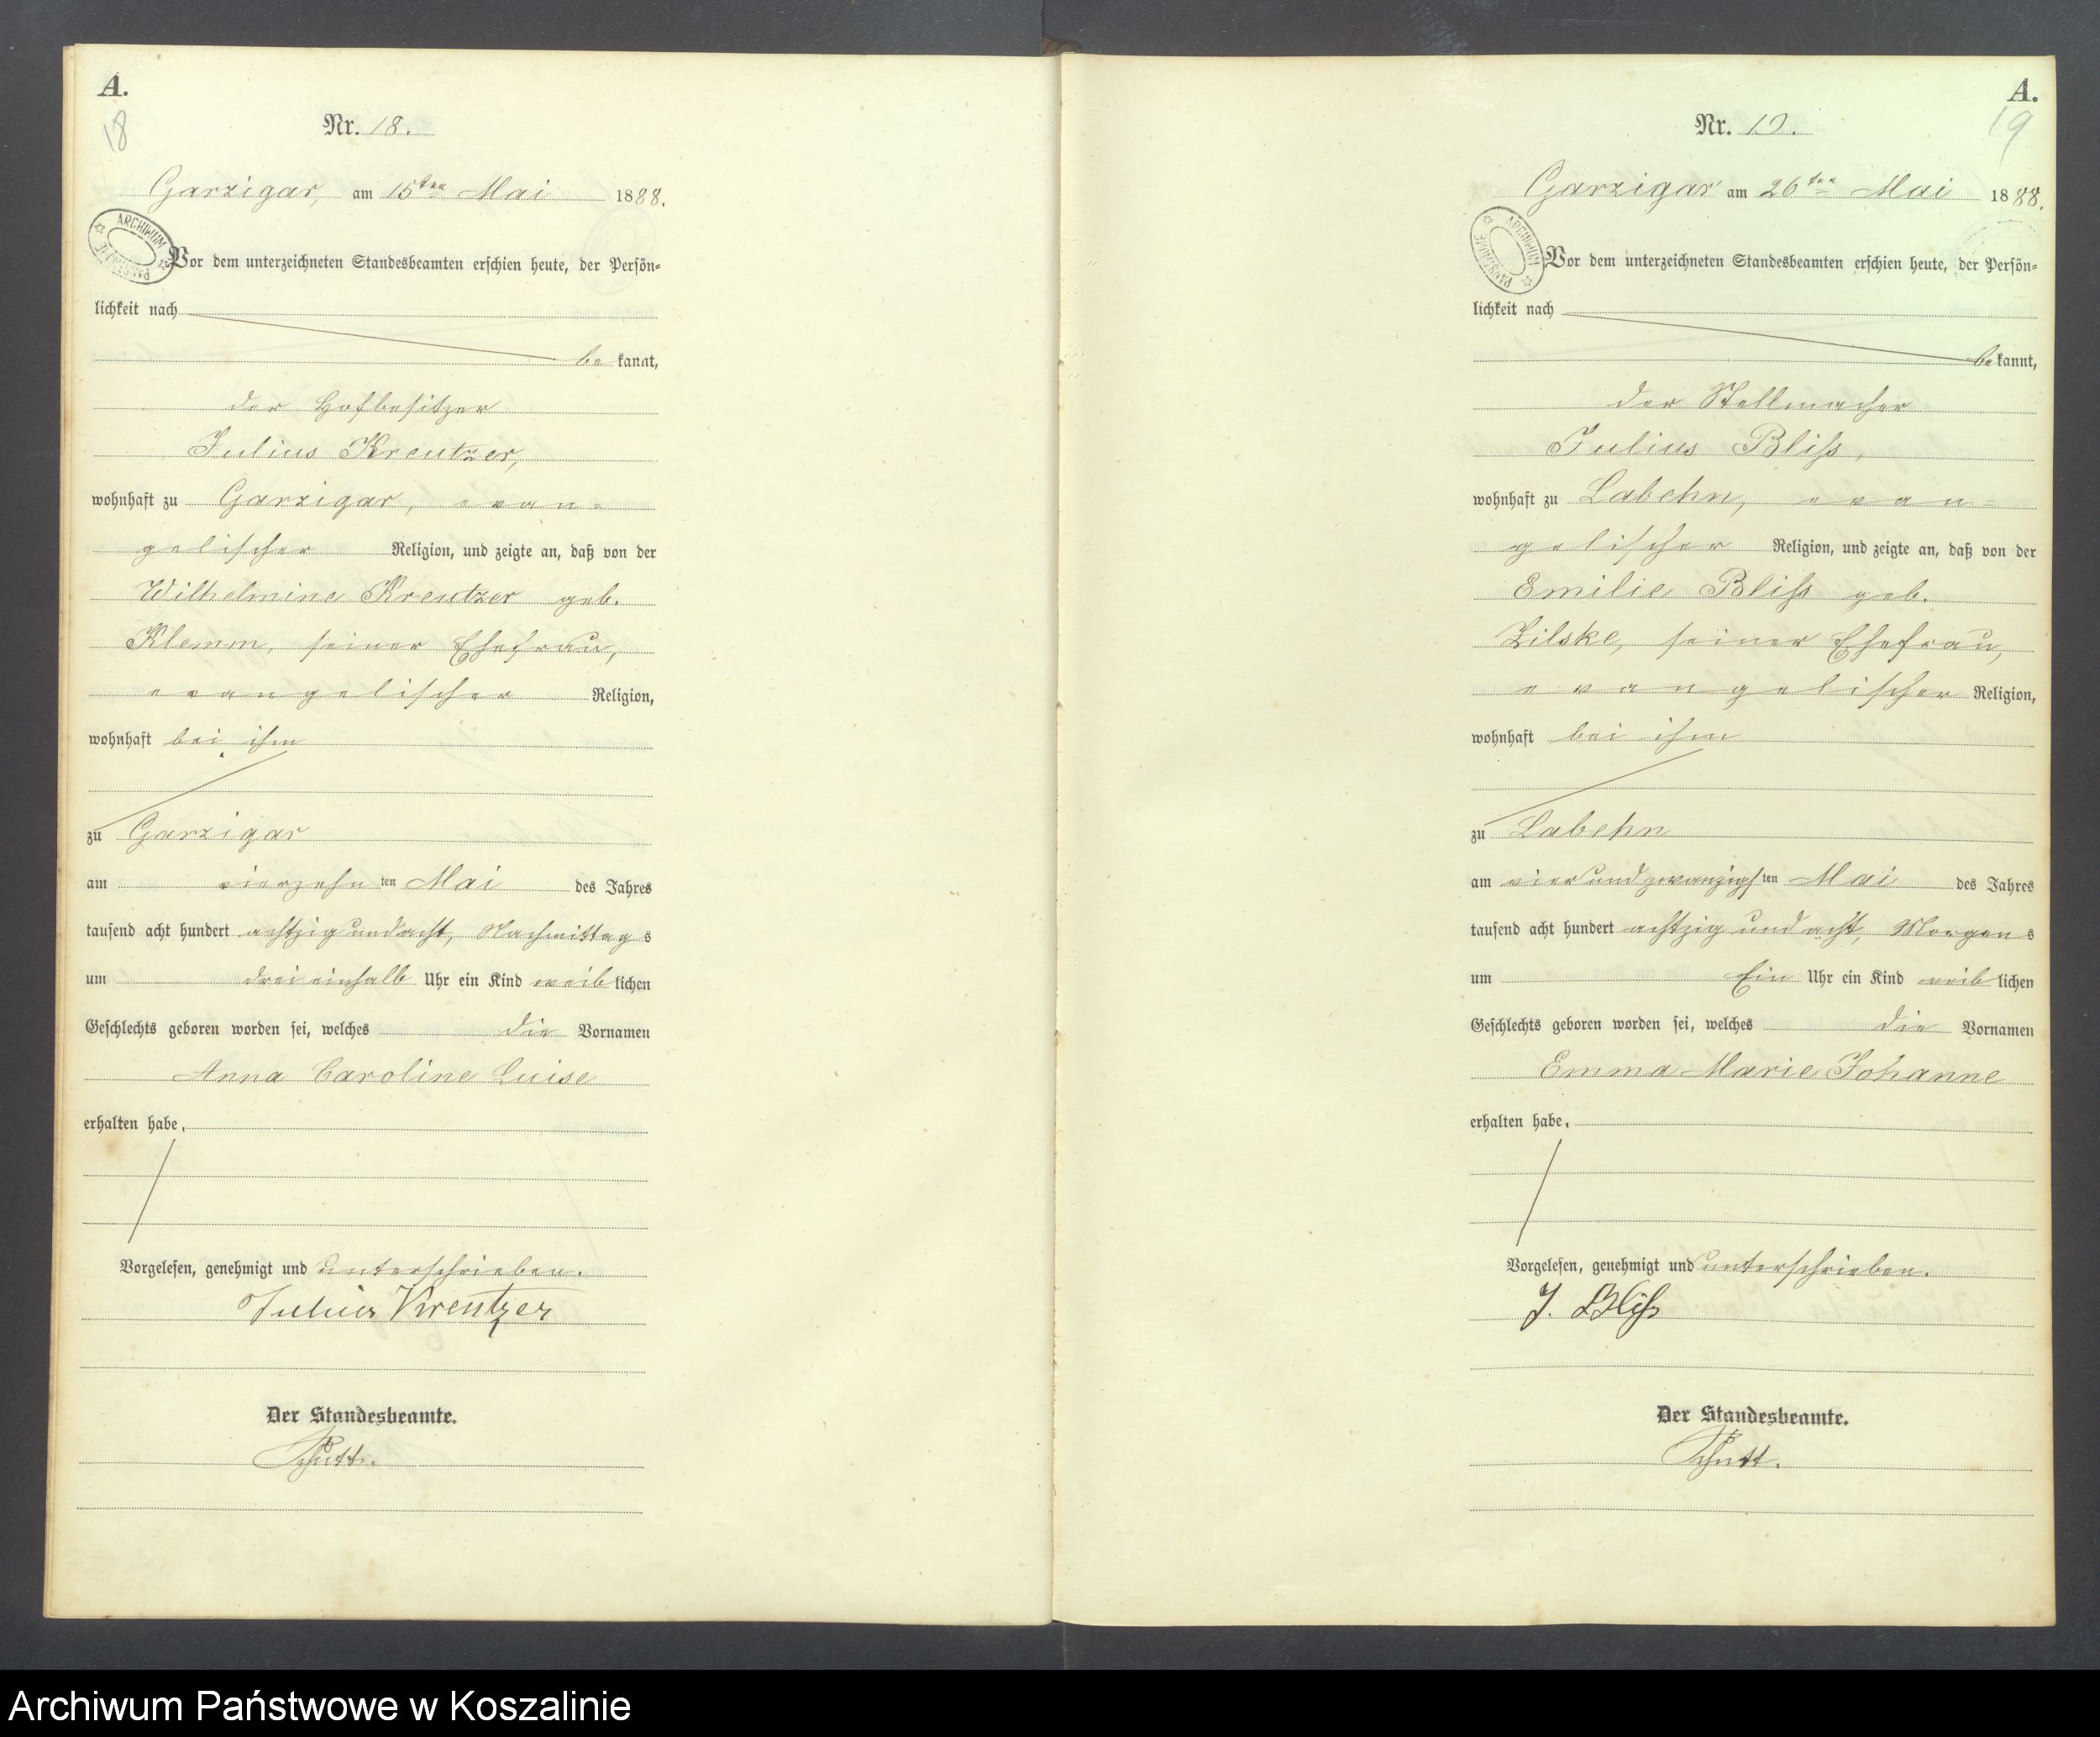 A.
18
Nr. 18.
Garzigar, am 15ten Mai 1888.
ARCHIWUM PAŃSTWOWE
Vor dem unterzeichneten Standesbeamten erschien heute, der Persön=
lichkeit nach
be kannt,
der Hofbesitzer
Julius Kreutzer,
wohnhaft zu Garzigar, evan=
gelischer Religion, und zeigte an, daß von der
Wilhelmine Kreutzer geb.
Klemm, seiner Ehefrau,
evangelischer Religion,
wohnhaft bei ihm
zu Garzigar
am vierzehn ten Mai des Jahres
tausend acht hundert achtzig und acht, Nachmittag s
um drei einhalb Uhr ein Kind weib lichen
Geschlechts geboren worden sei, welches die Vornamen
Anna Caroline Luise
erhalten habe.
Vorgelesen, genehmigt und unterschrieben.
Julius Kreutzer
Der Standesbeamte.
Schütt.
A.
19
Nr. 19.
Garzigar am 26ten Mai 1888.
ARCHIWUM PAŃSTWOWE
Vor dem unterzeichneten Standesbeamten erschien heute, der Persön=
lichkeit nach
be kannt,
der Stellmacher
Julius Bliß,
wohnhaft zu Labehn, evan=
gelischer Religion, und zeigte an, daß von der
Emilie Bliß geb.
Zilske, seiner Ehefrau,
evangelischer Religion,
wohnhaft bei ihm
zu Labehn
am vier und zwanzigs ten Mai des Jahres
tausend acht hundert achtzig und acht, Morgen s
um Ein Uhr ein Kind weib lichen
Geschlechts geboren worden sei, welches die Vornamen
Emma Marie Johanne
erhalten habe.
Vorgelesen, genehmigt und unterschrieben.
J. Bliß
Der Standesbeamte.
Schütt.
Archiwum Państwowe w Koszalinie